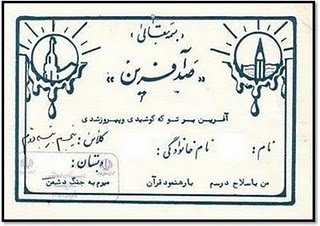 بسمه تعالی
«صد آفرین»
آفرین بر تو که کوشیدی و پیروز شدی
نام : نام خانوادگی : کلاس : پنجم
دبستان :
من با سلاح درسم با رهنمود قرآن میرم به جنگ دشمن